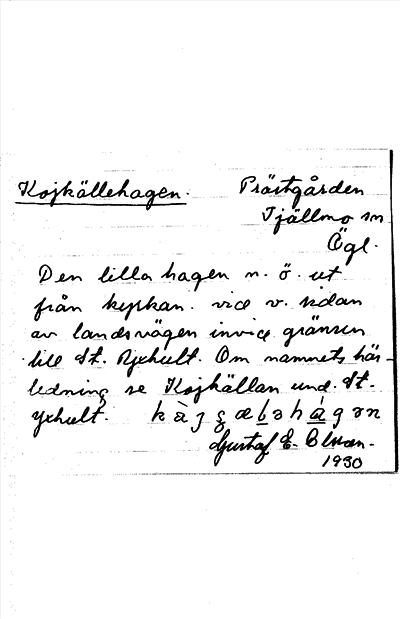 Kojkällehagen.
Prästgården
Tjällmo sn
Ögl.
Den lilla hagen n. ö. ut
från kyrkan. vid v. sidan
av landsvägen invid gränsen
till St. Yxhult. Om namnets här-
ledning se Kojkällan und. St.
Yxhult.
Gustaf E. Elman.
1930